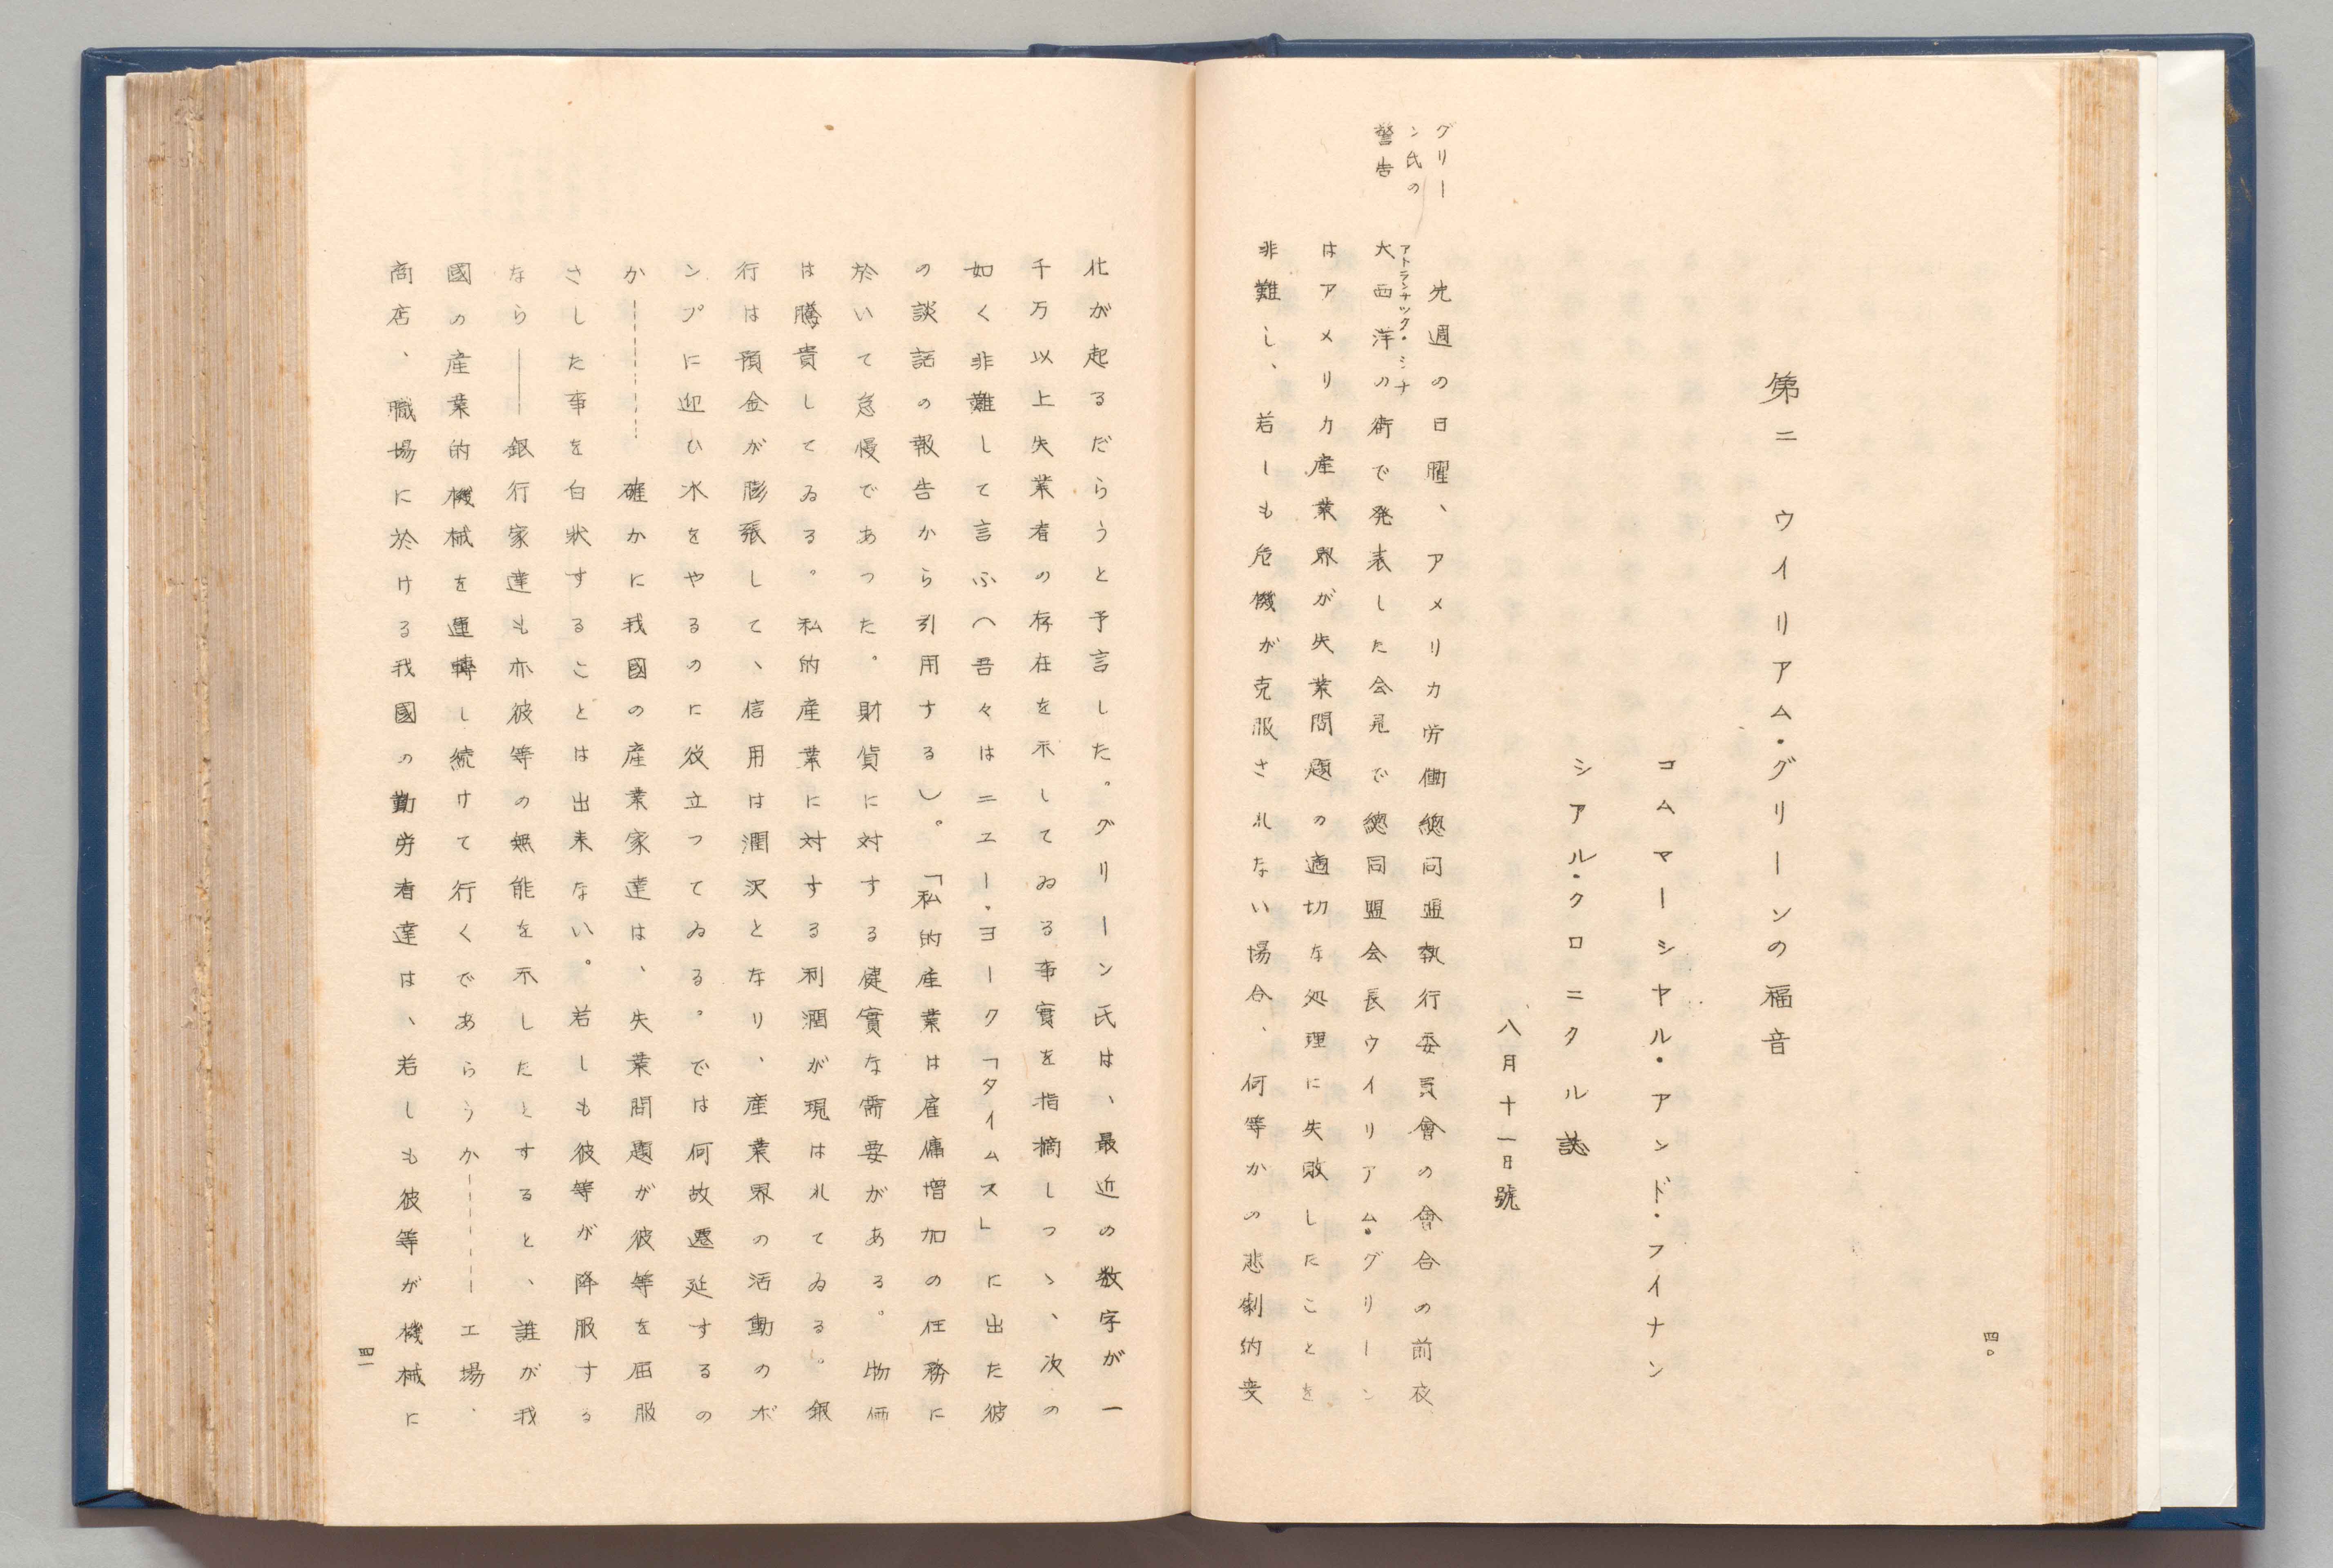 四〇
第二　ウイリアム・グリーンの福音
コムマーシヤル・アンド・フイナン
シアル・クロニクル誌
八月十一日號
グリー
ン氏の
警告
先週の日曜、アメリカ労働總同盟執行委員會の會合の前夜
アトランチック・シチ
大西洋の街で発表した会見で總同盟会長ウイリアム・グリーン
はアメリカ産業界が失業問題の適切な処理に失敗したことを
非難し、若しも危機が克服されない場合、何等かの悲劇的変
化が起るだらうと予言した。グリーン氏は、最近の数字が一
千万以上失業者の存在を示してゐる事實を指摘しつゝ、次の
如く非難して言ふ（吾々はニエー・ヨーク「タイムス」に出た彼
の談話の報告から引用する）。「私的産業は雇傭増加の任務に
於いて怠慢であつた。財貨に対する健實な需要がある。物価
は騰貴してゐる。私的産業に対する利潤が現はれてゐる。銀
行は預金が膨張して、信用は潤沢となり、産業界の活動のポ
ンプに迎ひ水をやるのに役立つてゐる。では何故遷延するの
か------確かに我國の産業家達は、失業問題が彼等を屈服
さした事を白状することは出来ない。若しも彼等が降服する
なら——銀行家達も亦彼等の無能を示したとすると、誰が我
國の産業的機械を運轉し続けて行くであらうか------工場、
商店、職場に於ける我國の勤労者達は、若しも彼等が機械に
四一